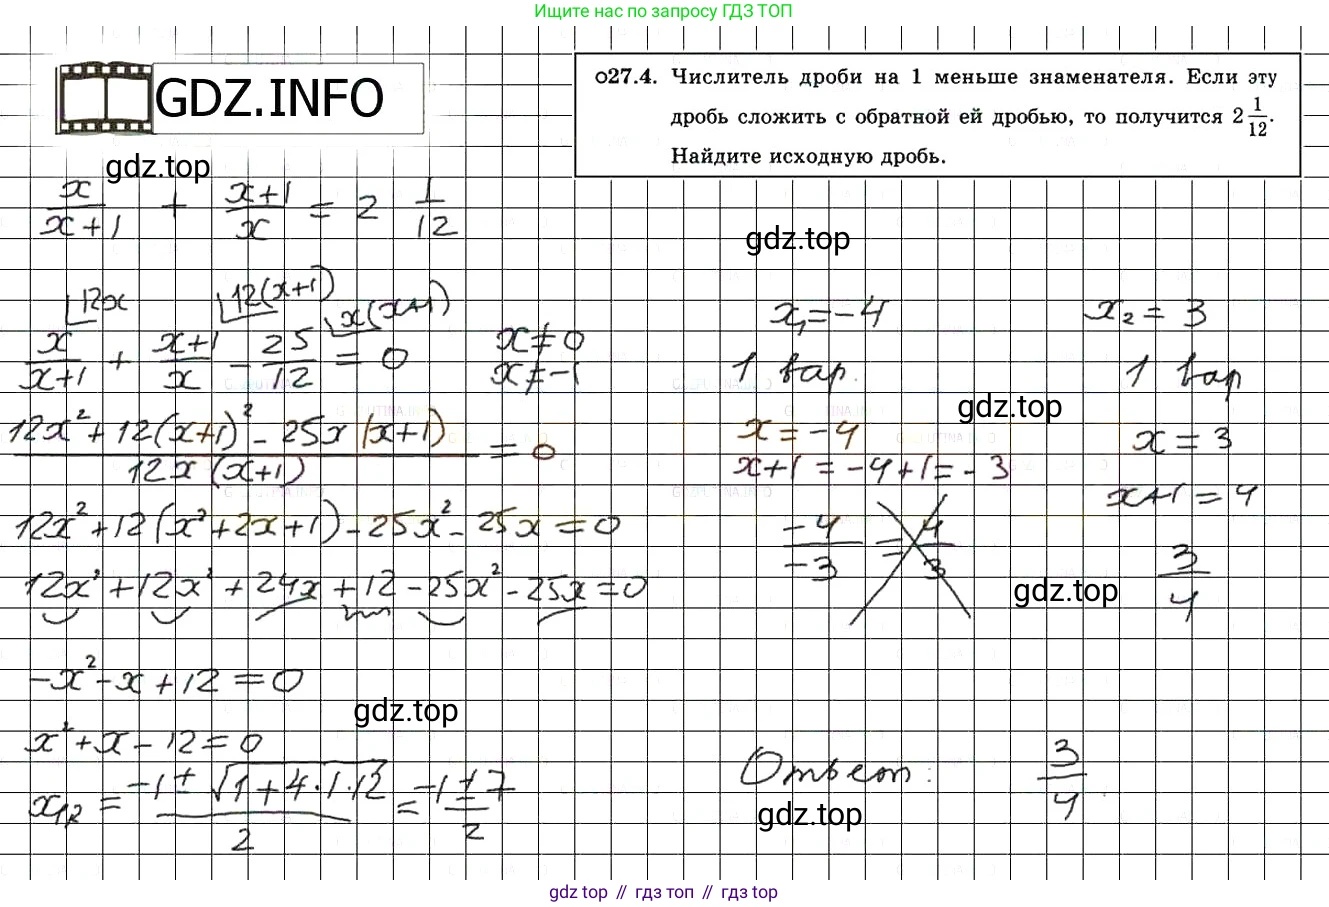 Ищите нас по запросу ГДЗ ТОП
GDZ.INFO
о27.4. Числитель дроби на 1 меньше знаменателя. Если эту
дробь сложить с обратной ей дробью, то получится 2 1/12.
Найдите исходную дробь.
gdz.top
x/(x+1) + (x+1)/x = 2 1/12
gdz.top
12x 12(x+1) x(x+1)
x/(x+1) + (x+1)/x - 25/12 = 0
x ≠ 0
x ≠ -1
(12x² + 12(x+1)² - 25x(x+1))/(12x(x+1)) = 0
12x² + 12(x² + 2x + 1) - 25x² - 25x = 0
12x² + 12x² + 24x + 12 - 25x² - 25x = 0
-x² - x + 12 = 0
gdz.top
x² + x - 12 = 0
x₁,₂ = (-1 ± √(1 + 4·1·12))/2 = (-1 ± 7)/2
x₁ = -4
1 вар.
gdz.top
x = -4
x+1 = -4+1 = -3
-4/-3 = 4/3
x₂ = 3
1 вар
x = 3
x+1 = 4
gdz.top
3/4
Ответ: 3/4.
gdz.top
gdz top // гдз топ // гдз top